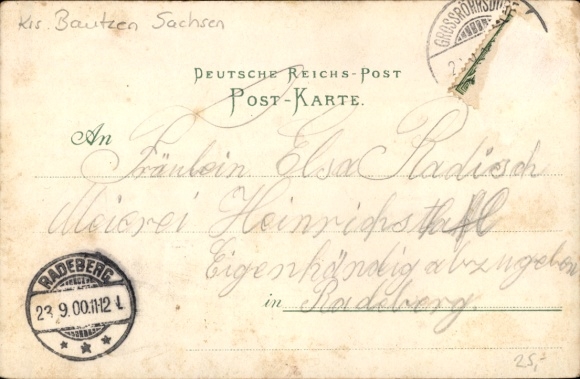 Krs. Bautzen Sachsen
GROSSRÖHRSDORF
DEUTSCHE REICHS-POST
POST-KARTE.
An
Fräulein Elsa Radisch
Meierei Heinrichsthal
Eigenhändig abzugeben
in Radeberg.
RADEBERG
23.9.00.11-12 V.
25,-